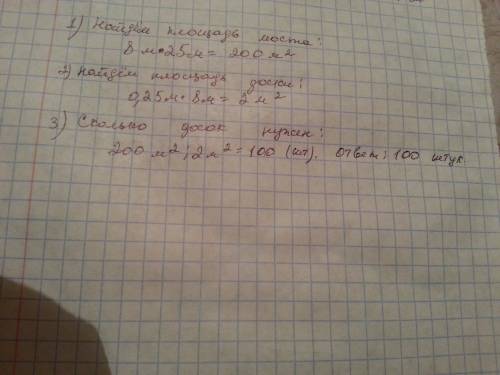 1) Найдём площадь моста:
8 м • 25 м = 200 м²
2) Найдём площадь доски:
0,25 м • 8 м = 2 м²
3) Сколько досок нужно:
200 м² : 2 м² = 100 (шт). ответ: 100 штук.